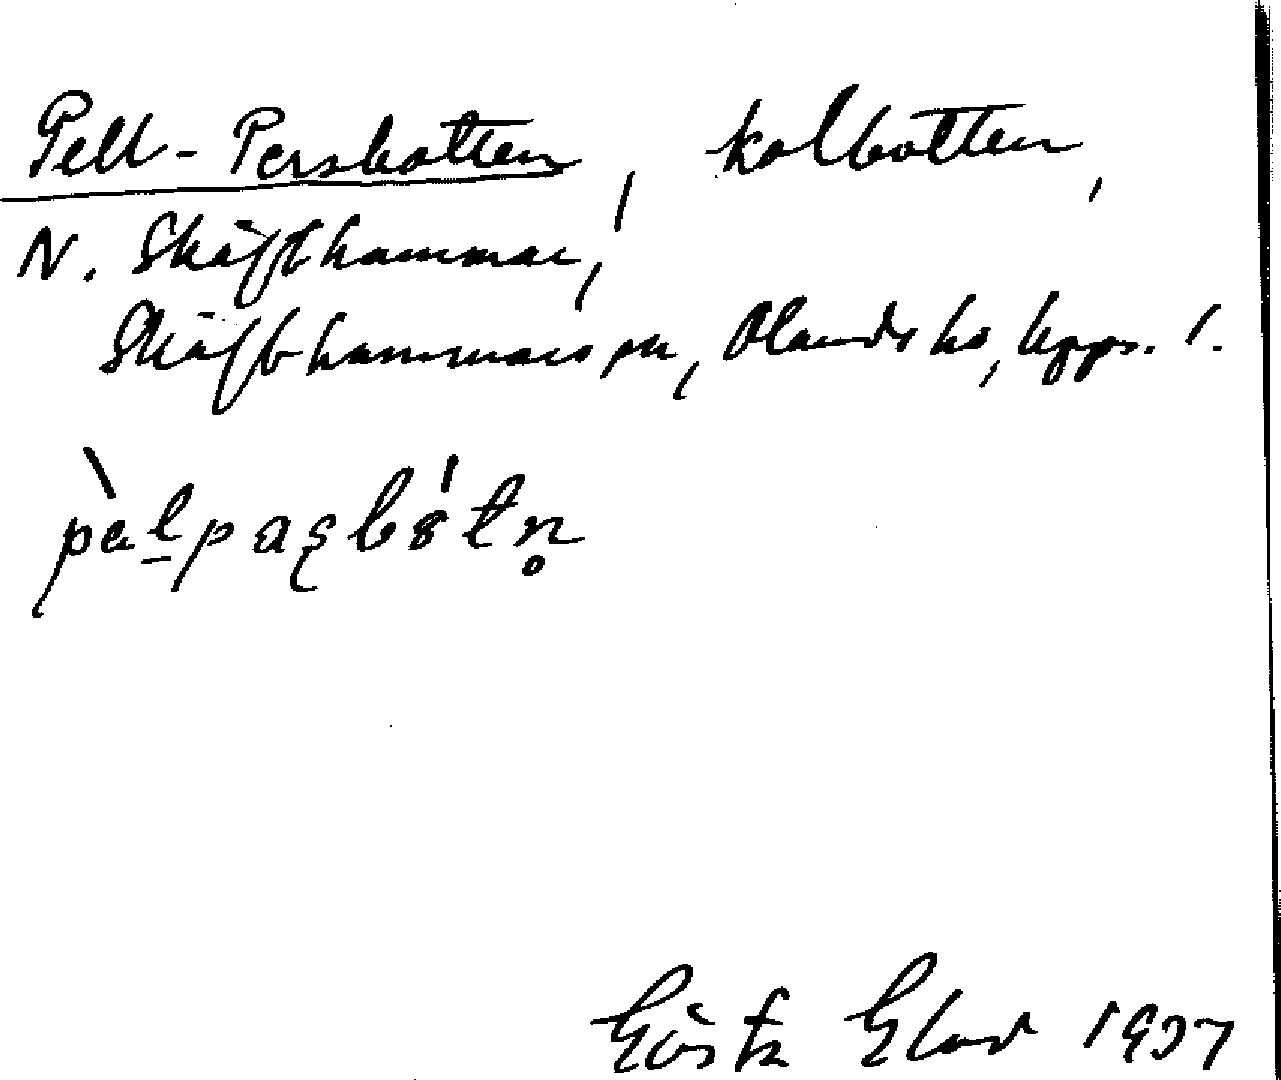 Pell-Persbotten, kolbotten,
N. Skäfthammar,
Skäfthammars sn, Olands hd, Upps. l.
Gösta 1937